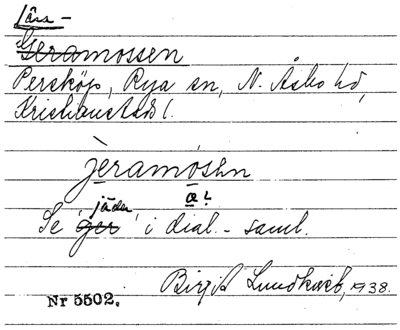 Läss -
Geramossen
Perstköp, Rya sn, N. Åsbo hd,
Kristianstads l.
jeramósn
æ?
jäder
Se 'ger' i dial. - saml.
Birgit Lundkvist, 1938.
Nr 5502.